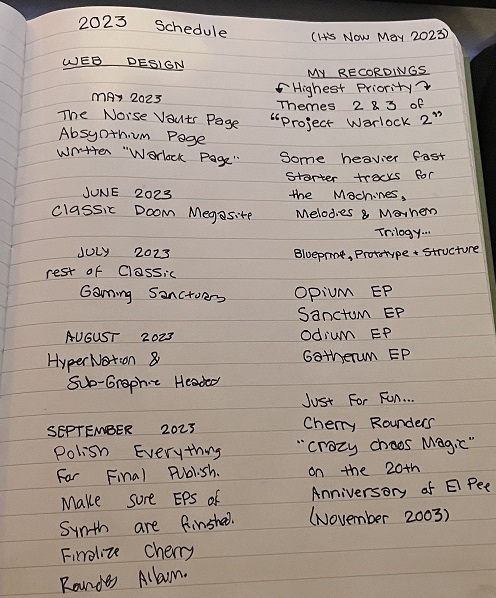 2023 Schedule
(It's Now May 2023)
WEB DESIGN
MAY 2023
The Noise Vaults Page
Absynthium Page
Written "Warlock Page"
JUNE 2023
Classic Doom Megasite
JULY 2023
rest of Classic
Gaming Sanctuary
AUGUST 2023
HyperNation &
Sub-Graphic Header
SEPTEMBER 2023
Polish Everything
For Final Publish.
Make sure EPs of
Synth are finished.
Finalize Cherry
Rounders Album.
MY RECORDINGS
Highest Priority
Themes 2 & 3 of
"Project Warlock 2"
Some heavier fast
Starter tracks for
the Machines,
Melodies & Mayhem
Trilogy...
Blueprint, Prototype + Structure
Opium EP
Sanctum EP
Odium EP
Gatherum EP
Just For Fun...
Cherry Rounders
"Crazy Chaos Magic"
on the 20th
Anniversary of El Pee
(November 2003)